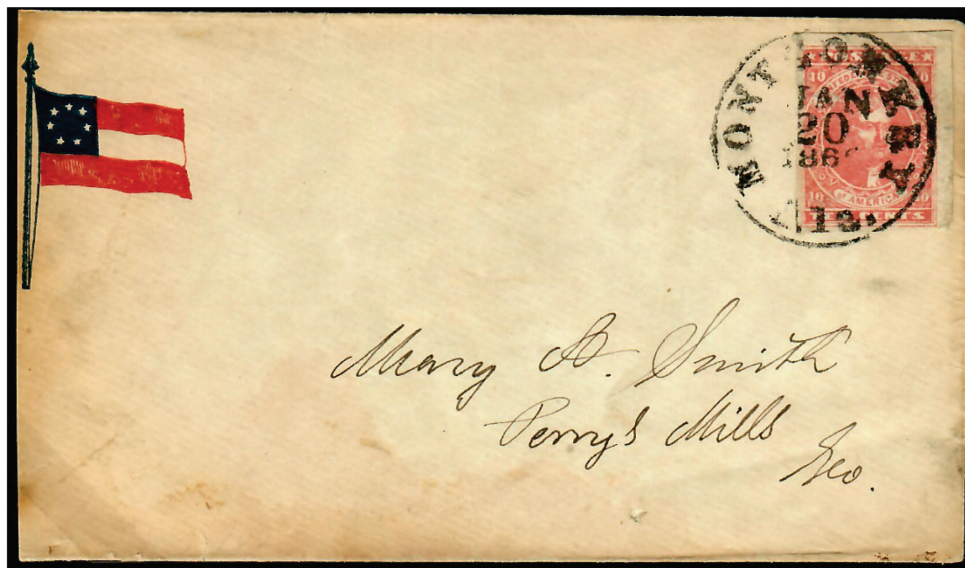 MONTGOMERY
JAN
20
186
Ala.
10 10
OF AMERICA
10 10
Mary A. Smith
Perrys Mills
Geo.